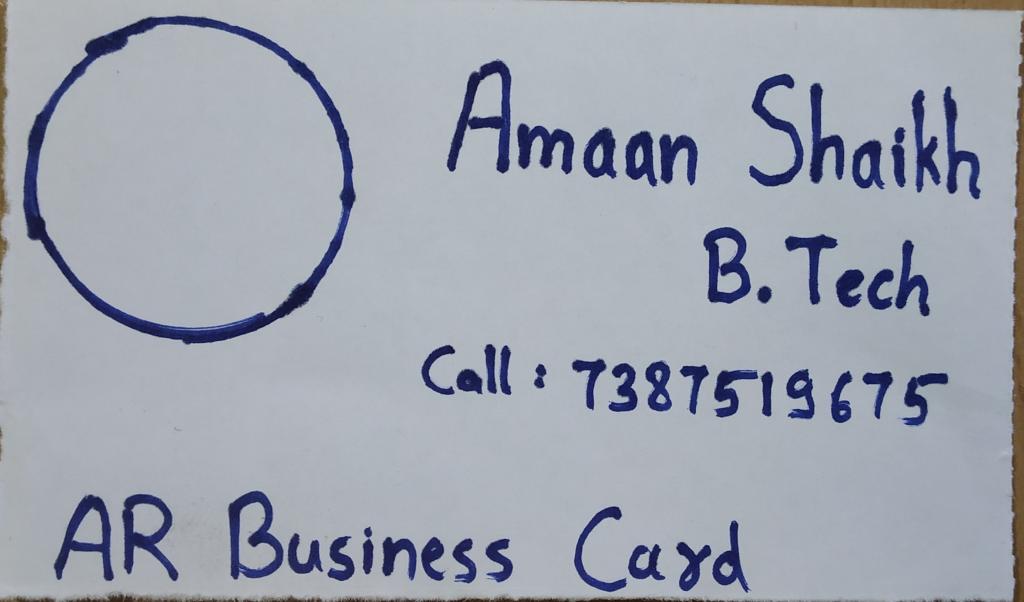 Amaan Shaikh
B.Tech
Call : 7387519675
AR Business Card